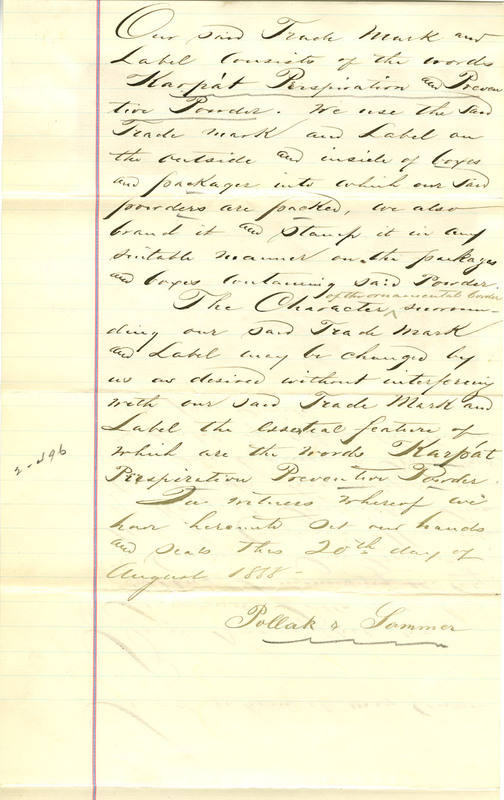 Our said Trade Mark and
Label consists of the words
Karpát Perspiration and Preven
tive Powder. We use the said
Trade mark and Label on
the outside and inside of boxes
and packages into which our said
powders are packed, we also
brand it and stamp it in any
suitable manner on the packages
and boxes containing said Powder.
of the ornamental border
The Character surroun-
ding our said Trade Mark
and Label may be changed by
us as desired without interfering
with our said Trade Mark and
Label the essential feature of
which are the words Karpát
Perspiration Preventive Powder.
In witness whereof we
have hereunto set our hands
and seals this 20th day of
August 1888-
Pollak & Sommer